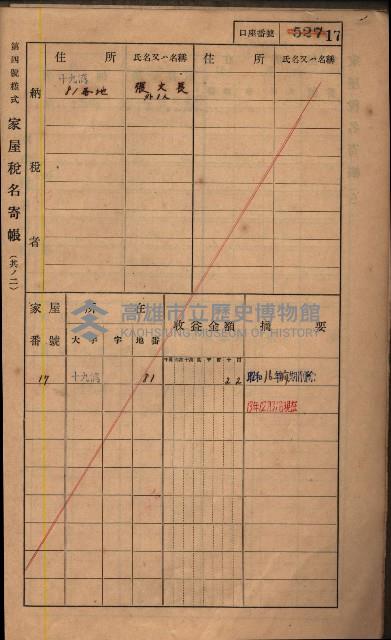 口座番號 52717
第四號樣式 家屋稅名寄帳 (共ノ二)
納稅者
住所 氏名又ハ名稱 住所 氏名又ハ名稱
十九湾
81番地 張文長
外1人
家屋番號 所在 收益金額 摘要
大字 字 地番
17 十九湾 81 22 昭和16年
高雄市立歷史博物館
KAOHSIUNG MUSEUM OF HISTORY